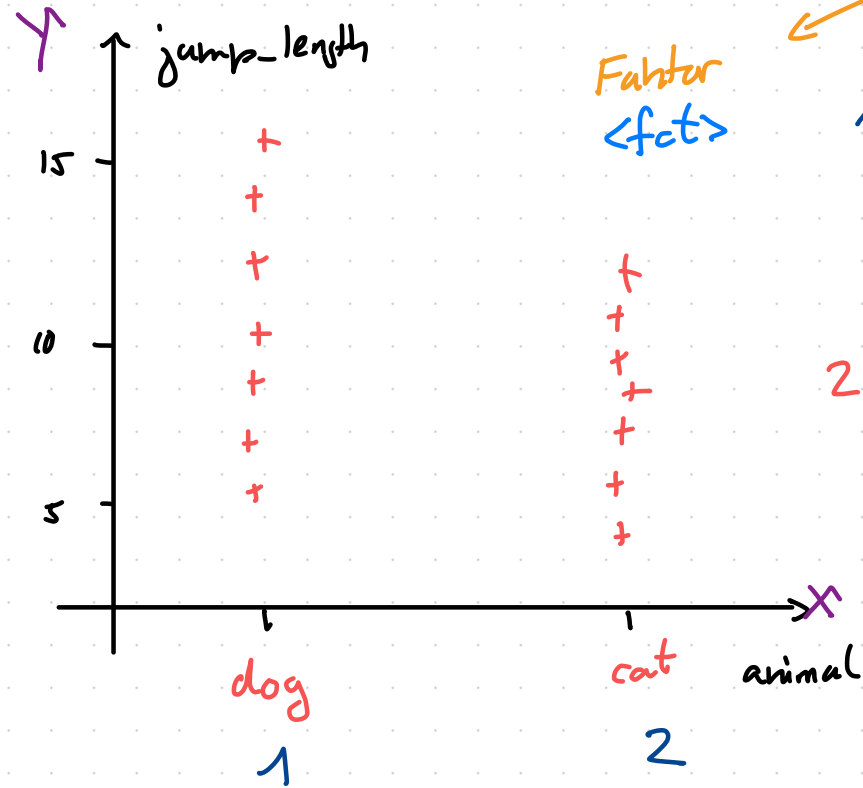 Y
jump_length
Faktor
<fct>
15
10
5
2
X
dog
cat
animal
1
2